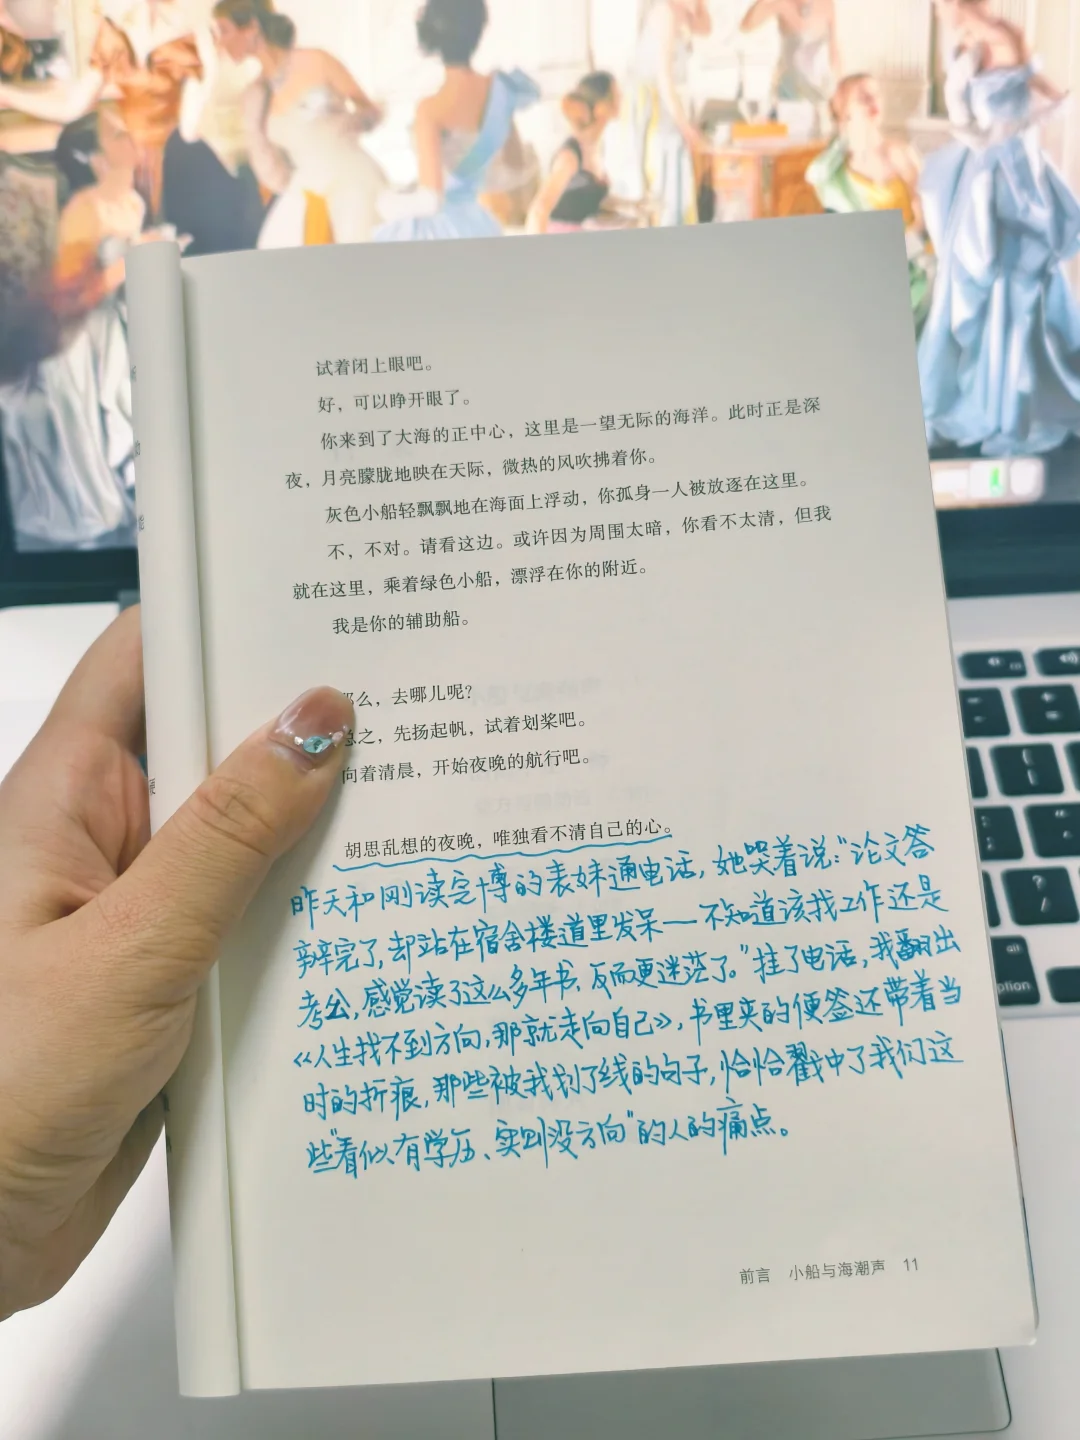 试着闭上眼吧。
好，可以睁开眼了。
你来到了大海的正中心，这里是一望无际的海洋。此时正是深
夜，月亮朦胧地映在天际，微热的风吹拂着你。
灰色小船轻飘飘地在海面上浮动，你孤身一人被放逐在这里。
不，不对。请看这边。或许因为周围太暗，你看不太清，但我
就在这里，乘着绿色小船，漂浮在你的附近。
我是你的辅助船。
么，去哪儿呢？
之，先扬起帆，试着划桨吧。
向着清晨，开始夜晚的航行吧。
胡思乱想的夜晚，唯独看不清自己的心。
昨天和刚读完博的表妹通电话，她哭着说：“论文答
辩完了，却站在宿舍楼道里发呆—不知道该找工作还是
考公，感觉读了这么多年书，反而更迷茫了。”挂了电话，我翻出
《人生找不到方向，那就走向自己》，书里夹的便签还带着当
时的折痕，那些被我划了线的句子，恰恰戳中了我们这
些“看似有学历、实则没方向”的人的痛点。
前言 小船与海潮声 11
option
alt
?